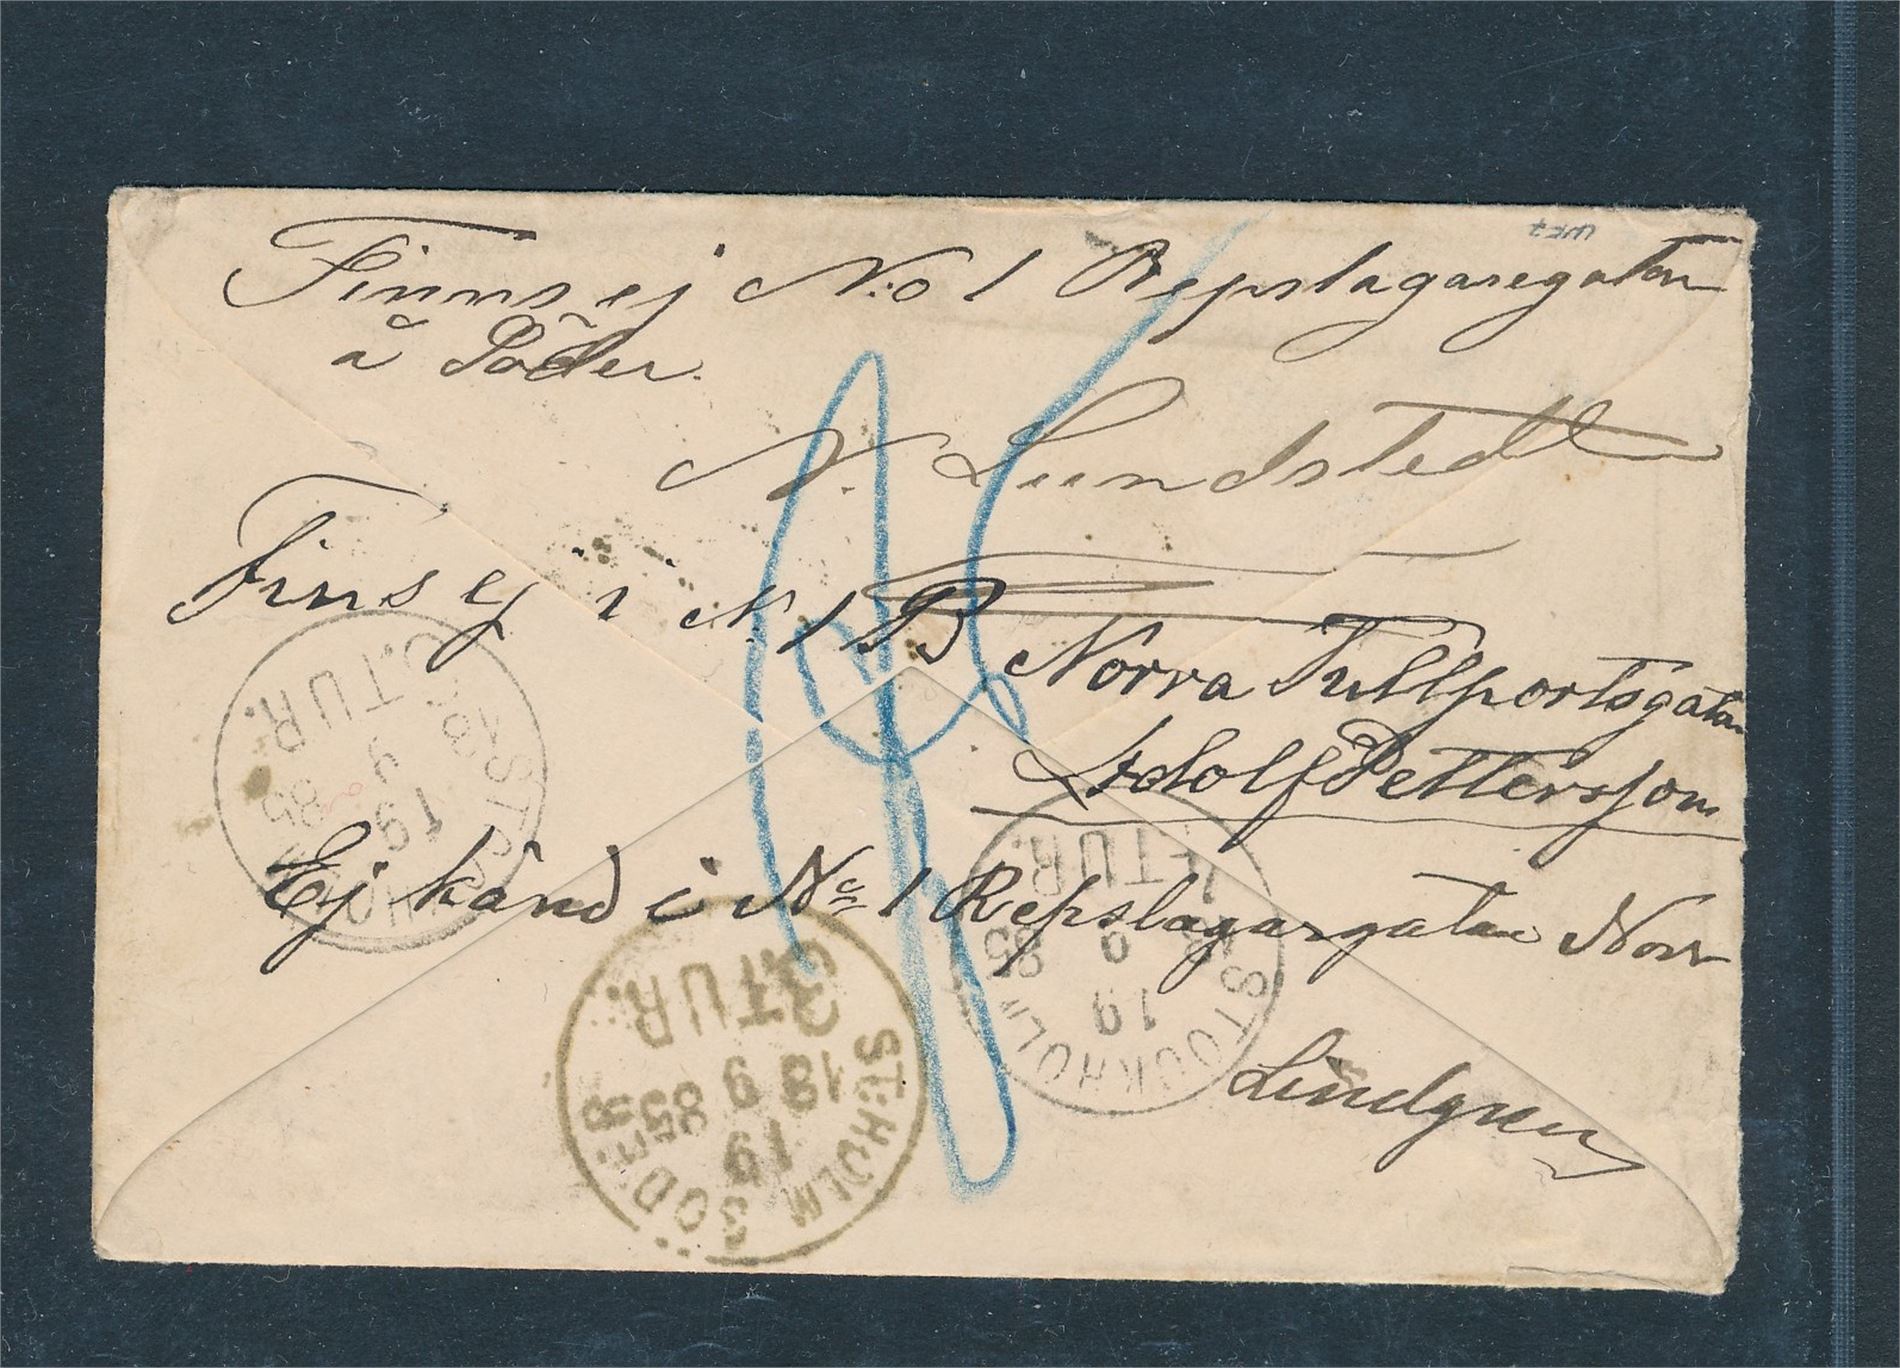 Finns ej N:o 1 Repslagaregatan
å Söder.
N. Lundstedt
Fins ej i N. 1 B Norra Tullportsgatan
Adolf Pettersson
Ej känd i No 1 Repslagargatan Norr
Lindgren
STOCKHOLM
19
9
85
TUR.
STOCKHOLM
18 9 85
19
1.TUR.
ST:HOLM SÖDER
19
18 9 85
3.TUR.